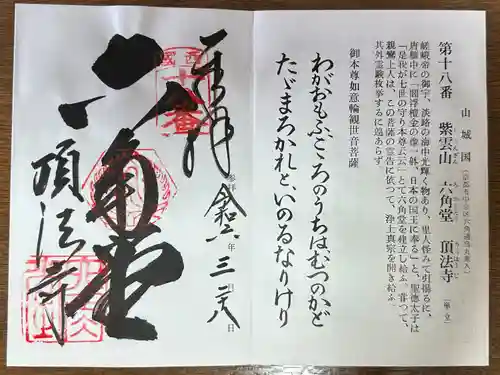 第十八番 紫雲山 六角堂 頂法寺 (単立)
しうんざん ろっかくどう ちょうほうじ
山城国 (京都市中京区六角通烏丸東入)
嵯峨帝の御宇、淡路の海中光輝く物あり、里人怪みて引揚るに、
唐櫃中に「閻浮檀金の像一躰、日本の国王に奉る」と、聖徳太子は
「是我が七世の守り本尊云云」とて六角堂を建立し給ふ。甞つて、
親鸞上人は、この菩薩の霊告に依つて、浄土真宗を開き給ふ
其外霊験枚挙するに遑あらず。
御本尊如意輪観世音菩薩
わがおもふこころのうちはむつのかど
たゞまろかれといのるなりけり
奉拝
参拝 令和六年三月二八日
西国
十八番
六角堂
頂法寺